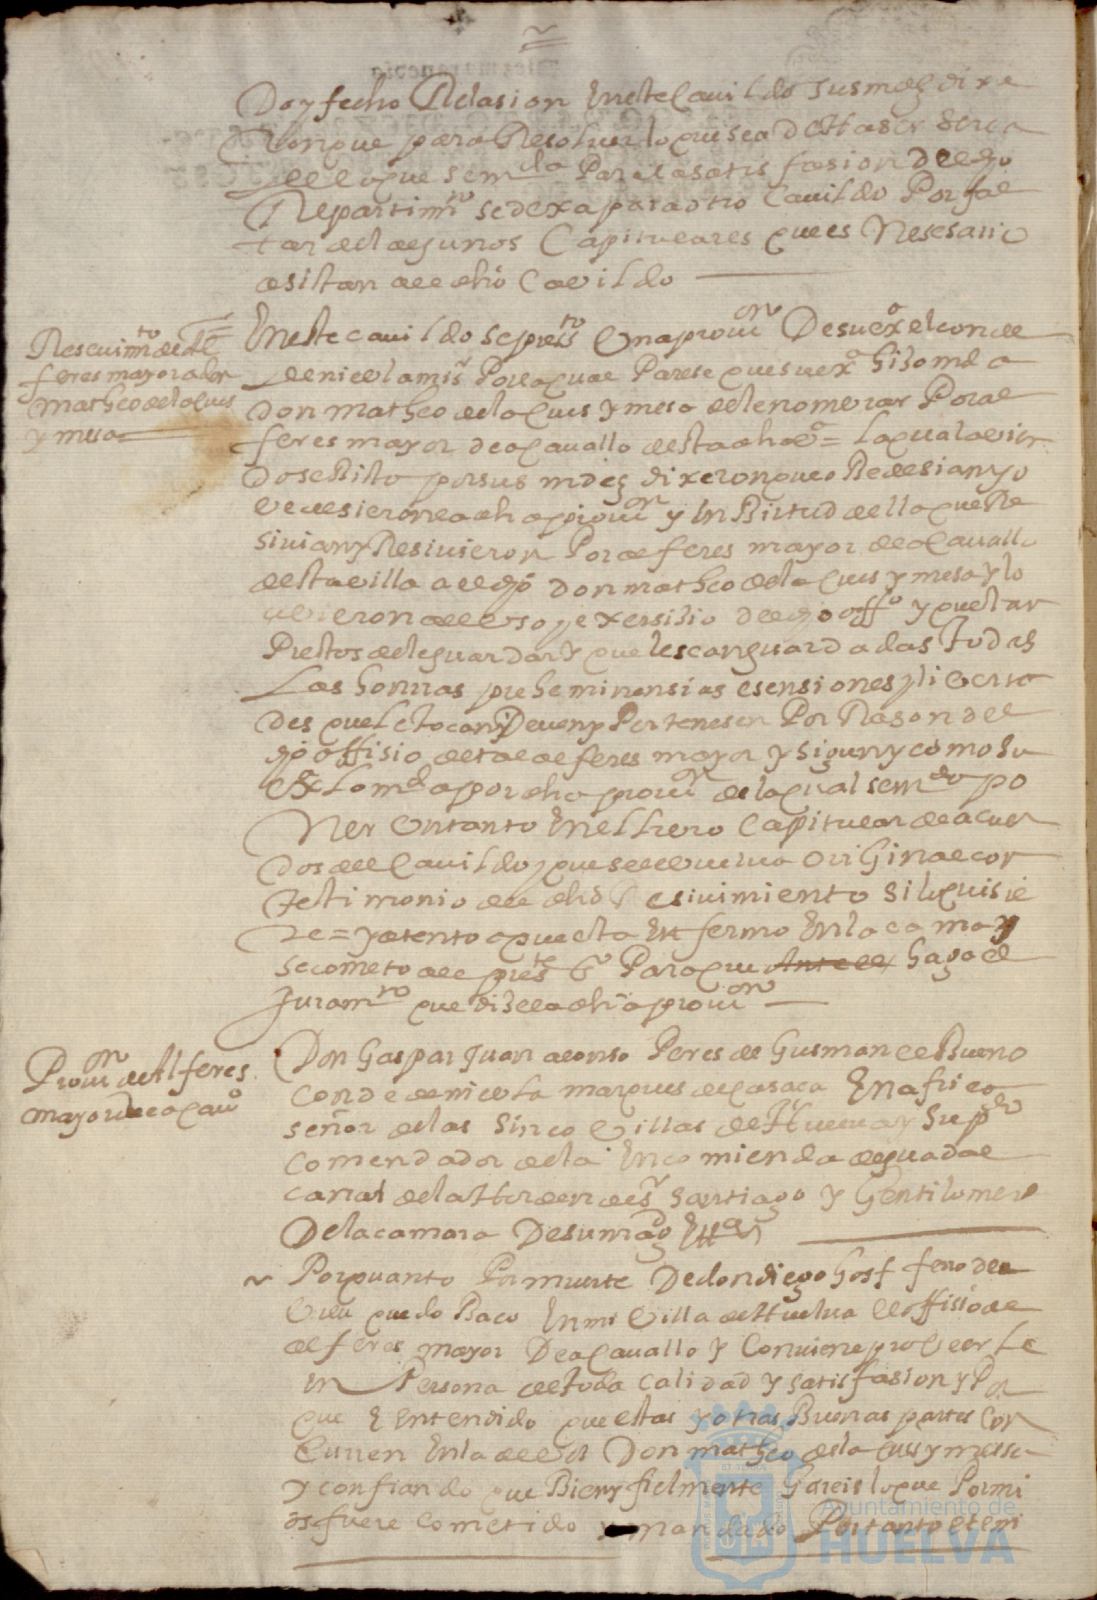 Do y fecho Relasion en este Cauildo sus mds dixe
ron que para Resoluer lo que sea de Haser serca
de lo que se mda Para la satisfasion de dho
Repartimto se dexa para otro Cauildo Por fal
tar del algunos Capitulares que es Nesesario
asistan al dho Cauildo
Resiuimto de Al
feres mayor a don
matheo de la Cueua
y mesa
En este cauildo se presto Una prouon De su exa el conde
de niebla mi sr Por la qual Parese que su exa hiso md a
don matheo de la Cueua y mesa de le nombrar Por al
feres mayor de a Cauallo desta dha va = La qual auien
dose Visto por sus mds dixeron que oBedesian y o
Vedesieron la dha prouon y En Birtud de lla que Re
siuian y Resiuieron Por alferes mayor de a Cauallo
desta villa a el dho don matheo de la Cueua y mesa y lo
al uso y exersisio de dho offo y que estan
Prestos de le guardar y que le sean guardadas todas
Las honrras preheminensias esensiones y liverta
des que le tocan y Deven y Pertenesen Por Rason del
dho offisio de tal alferes mayor y sigun y como su
exa Lo mda por dha prouon de la qual se mdo po
Ner Un tanto en el Libro Capitular de acuer
dos de el Cauildo y que se le buelua original con
testimonio de el dho Resiuimiento si lo quisie
re = y atento a que esta Enfermo En la cama y
se cometio a el preste esno Para que haga el
Juramto que dise la dha prouon
Prouon de Alferes
mayor de a Cauo
Don Gaspar Juan alonso Peres de Gusman el Bueno
conde de niebla marques de Casasa En africa
señor de las Sinco Villas de Huelua y su pdo
comendador de la Encomienda de guadal
canal de la Horden de sr Santiago y Gentilombre
De la camara De su magd Etta
Por quanto Por muerte De don diego
quedo Baco En mi Villa de Huelua el offisio de
alferes mayor De a Cauallo y Conviene proveerle
en Persona de toda calidad y satisfasion y Por
que E Entendido que estas y otras Buenas partes con
curren En la de Vos Don matheo de la Cueua y messa
y confiando que Bien y fielmente Hareis lo que Por mi
os fuere cometido y mandado Por tanto
Ayuntamiento de
HUELVA